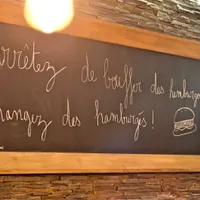 arrêtez de bouffer des hamburgers
mangez des hamburgés !